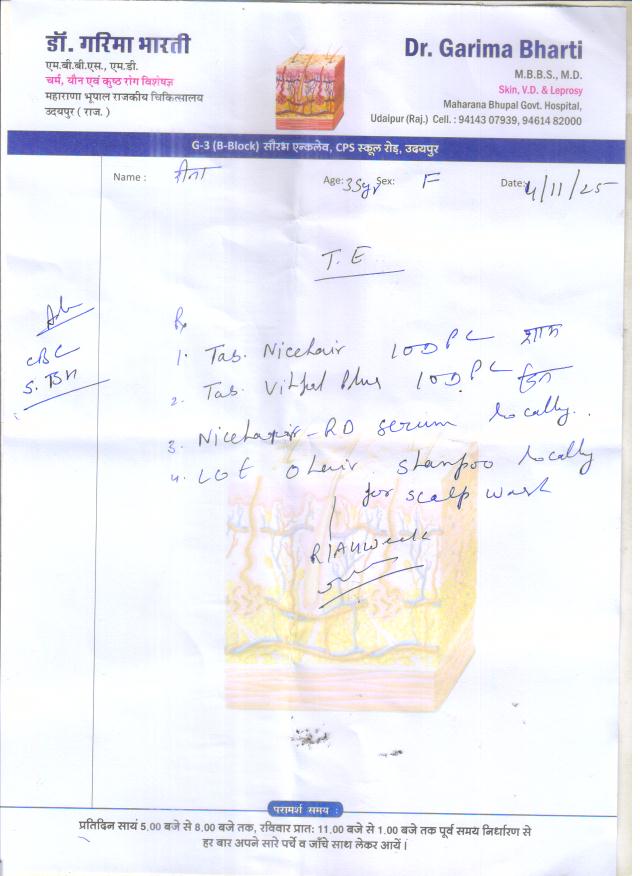 डॉ. गरिमा भारती
एम.बी.बी.एस., एम.डी.
चर्म, यौन एवं कुष्ठ रोग विशेषज्ञ
महाराणा भूपाल राजकीय चिकित्सालय
उदयपुर ( राज. )
Dr. Garima Bharti
M.B.B.S., M.D.
Skin, V.D. & Leprosy
Maharana Bhupal Govt. Hospital,
Udaipur (Raj.) Cell. : 94143 07939, 94614 82000
G-3 (B-Block) सौरभ एन्कलेव, CPS स्कूल रोड़, उदयपुर
Name : रीना Age: 35yr Sex: F Date: 4/11/25
T. E
Adv
CBC
S. B12
Rx
1. Tab. Nicehair 1 OD PC शाम
2. Tab. Plus 1 OD PC दिन
3. Nicehair-RD serum locally.
4. Lot shampoo locally
for scalp wash
R/A 4 week
परामर्श समय :
प्रतिदिन सायं 5.00 बजे से 8.00 बजे तक, रविवार प्रात: 11.00 बजे से 1.00 बजे तक पूर्व समय निर्धारण से
हर बार अपने सारे पर्चे व जाँचे साथ लेकर आयें।